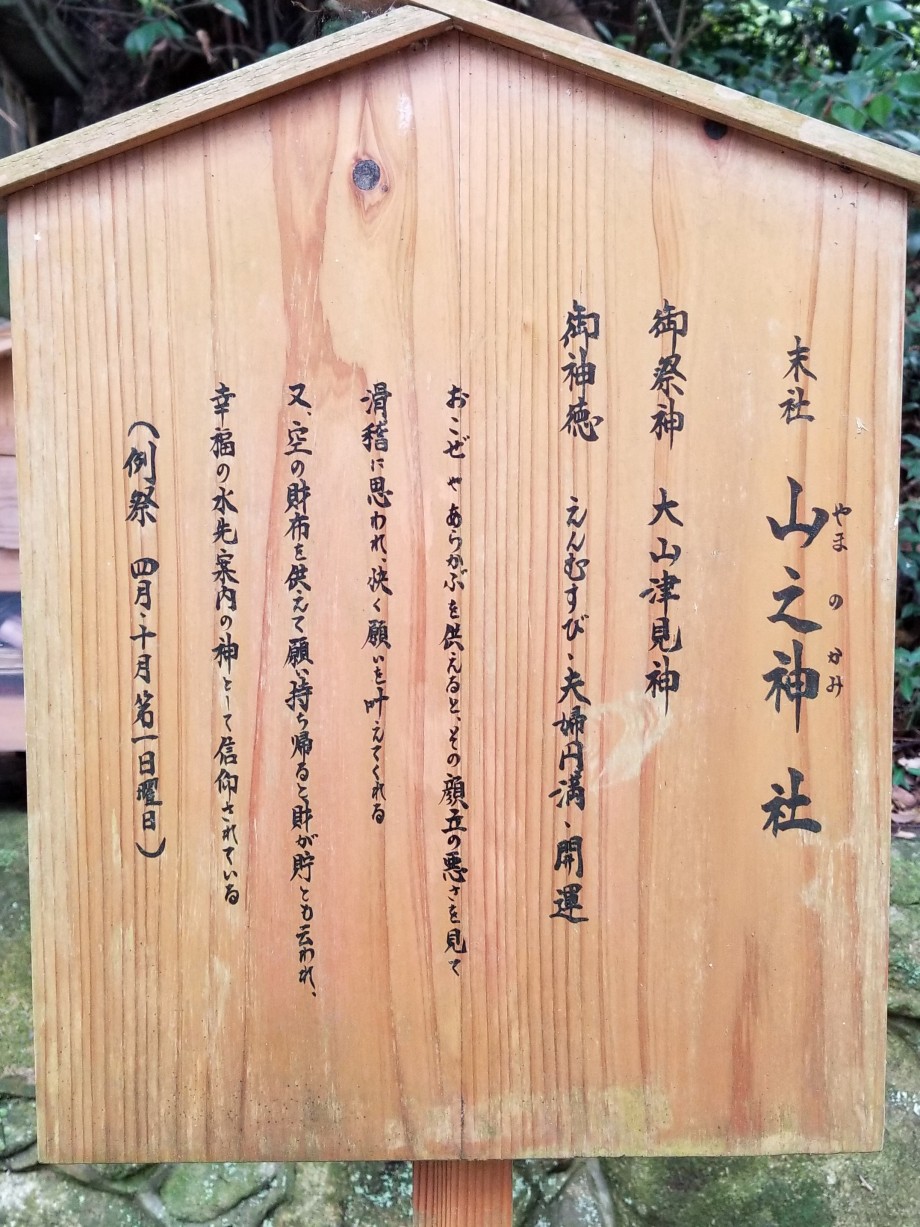 末社 山之神社
やまのかみ
御祭神 大山津見神
御神徳 えんむすび、夫婦円満、開運
おこぜやあらかぶを供えると、その顔立の悪さを見て
滑稽に思われ、快く願いを叶えてくれる
又、空の財布を供えて願い持ち帰ると財が貯とも云われ、
幸福の水先案内の神として信仰されている
(例祭 四月・十月 第一日曜日)